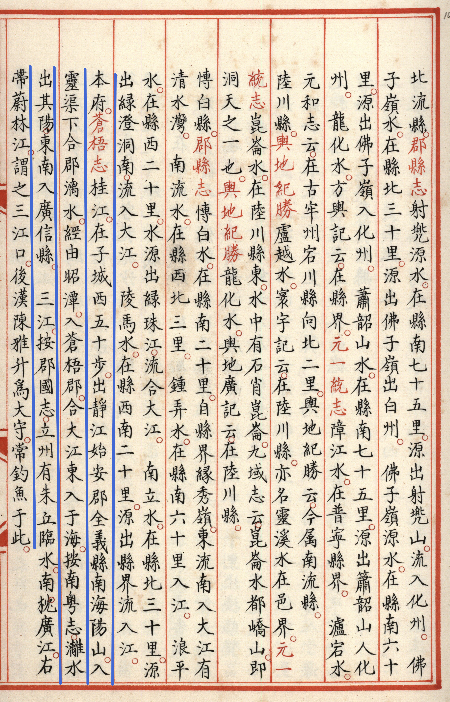 北流縣郡縣志射甕源水在縣南七十五里源出射甕山流入化州 佛
子嶺水在縣北三十里源出佛子嶺出白州 佛子嶺源水在縣南六十
里源出佛子嶺入化州 蕭韶山水在縣南七十五里源出蕭韶山人化
州 龍化水方輿記云在縣界元一統志障江水在普寧縣界 瀘宕水
元和志云在古牢州宕川縣向北二里輿地紀勝云今属南流縣
陸川縣輿地紀勝盧越水寰宇記云在陸川縣亦名靈溪水在邑界元一
統志崑崙水在陸川縣東水中有石肖崑崙九域志云崑崙水都嶠山即
洞天之一也輿地紀勝龍化水輿地廣記云在陸川縣
博白縣郡縣志博白水在縣南二十里自縣界緣秀嶺東流南入大江有
清水灣 南流水在縣西北三里 鍾弄水在縣南六十里入江 浪平
水在縣西二十里水源出緑珠江流合大江 南立水在縣北三十里源
出綠澄洞南流入大江 陵馬水在縣西南二十里源出縣界流入江
本府蒼梧志桂江在子城西五十步出靜江始安郡全義縣南海陽山入
靈渠下合郡漓水經由昭潭入蒼梧郡合大江東入于海按南粤志灕水
出其陽東南入廣信縣 三江按郡國志立州有朱立臨水南挑廣江右
帶蔚林江謂之三江口後漢陳雅升為大守常釣魚于此